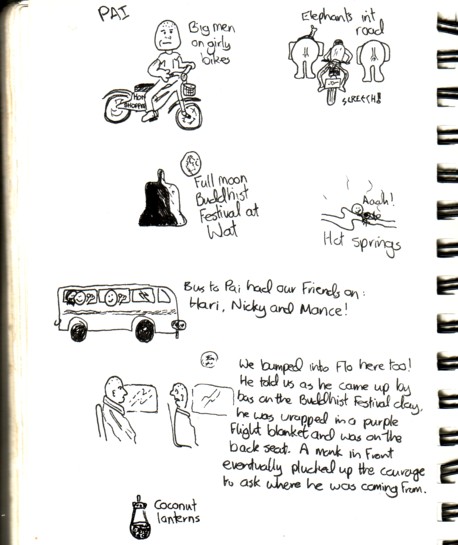 PAI
Big men
on girly
bikes
HOG
CHOPPER
Elephants int
road
SCREECH!!
Full moon
Buddhist
Festival at
Wat
Aaah!
Hot Springs
Bus to Pai had our friends on:
Hari, Nicky and Mance!
We bumped into Flo here too!
He told us as he came up by
bus on the Buddhist Festival day,
he was wrapped in a purple
flight blanket and was on the
back seat. A monk in front
eventually plucked up the courage
to ask where he was coming from.
Coconut
lanterns